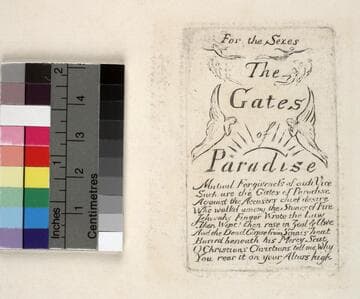 For the Sexes
The
Gates
of
Paradise
Mutual Forgiveness of each Vice
Such are the Gates of Paradise
Against the Accusers chief desire
Who walkd among the Stones of Fire
Jehovahs Finger Wrote the Law
Then Wept! then rose in Zeal & Awe
And the Dead Corpse from Sinais heat
Buried beneath his Mercy Seat
O Christians Christians tell me Why
You rear it on your Altars high
2
1
Inches
4
3
2
1
Centimetres